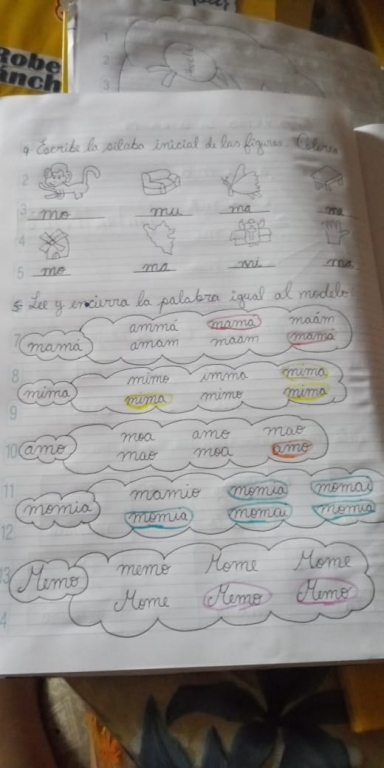 Robe
ánch
4 Escribe la sílaba inicial de las figuras. Colorea
mo mu ma me
mo ma mi ma
5- Lee y encierra la palabra igual al modelo
mamá
ammá mamá maám
amam maam mamá
mima
mimo imma mima
mima mimo mima
amo
moa amo mao
mao moa amo
momia
mamio momia momai
momia momai momia
Memo
memo Mome Mome
Mome Memo Memo